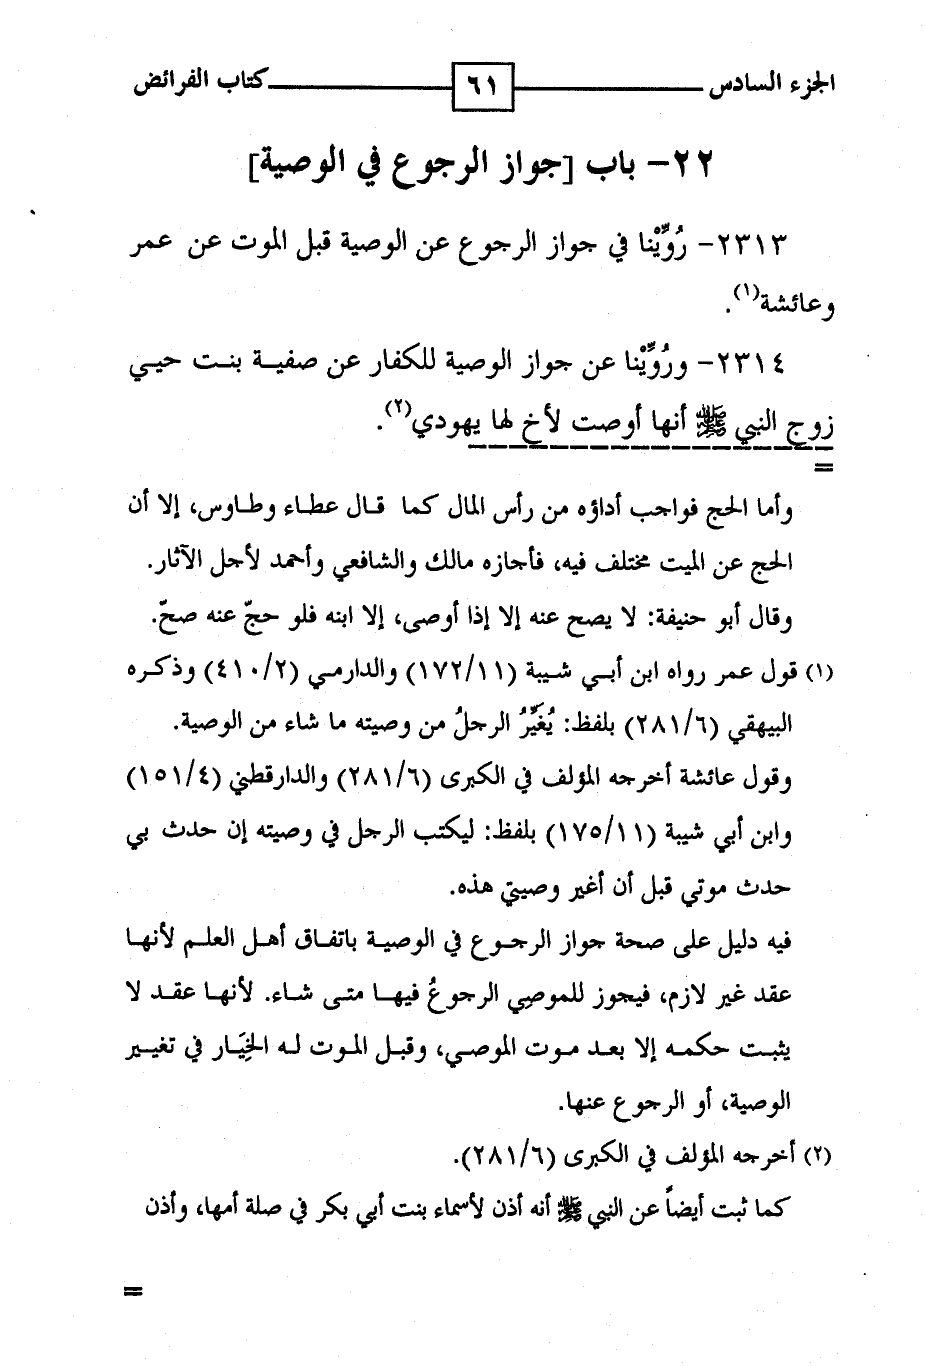 الجزء السادس ٦١ كتاب الفرائض
٢٢- باب [جواز الرجوع في الوصية]
٢٣١٣- رُوِّيْنا في جواز الرجوع عن الوصية قبل الموت عن عمر
وعائشة(١).
٢٣١٤- ورُوِّيْنا عن جواز الوصية للكفار عن صفية بنت حيي
زوج النبي ﷺ أنها أوصت لأخ لها يهودي(٢).
=
وأما الحج فواجب أداؤه من رأس المال كما قال عطاء وطاوس، إلا أن
الحج عن الميت مختلف فيه، فأجازه مالك والشافعي وأحمد لأجل الآثار.
وقال أبو حنيفة: لا يصح عنه إلا إذا أوصى، إلا ابنه فلو حجّ عنه صحّ.
(١) قول عمر رواه ابن أبي شيبة (١٧٢/١١) والدارمي (٤١٠/٢) وذكره
البيهقي (٢٨١/٦) بلفظ: يُغَيِّرُ الرجلُ من وصيته ما شاء من الوصية.
وقول عائشة أخرجه المؤلف في الكبرى (٢٨١/٦) والدارقطني (١٥١/٤)
وابن أبي شيبة (١٧٥/١١) بلفظ: ليكتب الرجل في وصيته إن حدث بي
حدث موتي قبل أن أغير وصيتي هذه.
فيه دليل على صحة جواز الرجوع في الوصية باتفاق أهل العلم لأنها
عقد غير لازم، فيجوز للموصِي الرجوعُ فيها متى شاء. لأنها عقد لا
يثبت حكمه إلا بعد موت الموصي، وقبل الموت له الخِيَار في تغيير
الوصية، أو الرجوع عنها.
(٢) أخرجه المؤلف في الكبرى (٢٨١/٦).
كما ثبت أيضاً عن النبي ﷺ أنه أذن لأسماء بنت أبي بكر في صلة أمها، وأذن
=